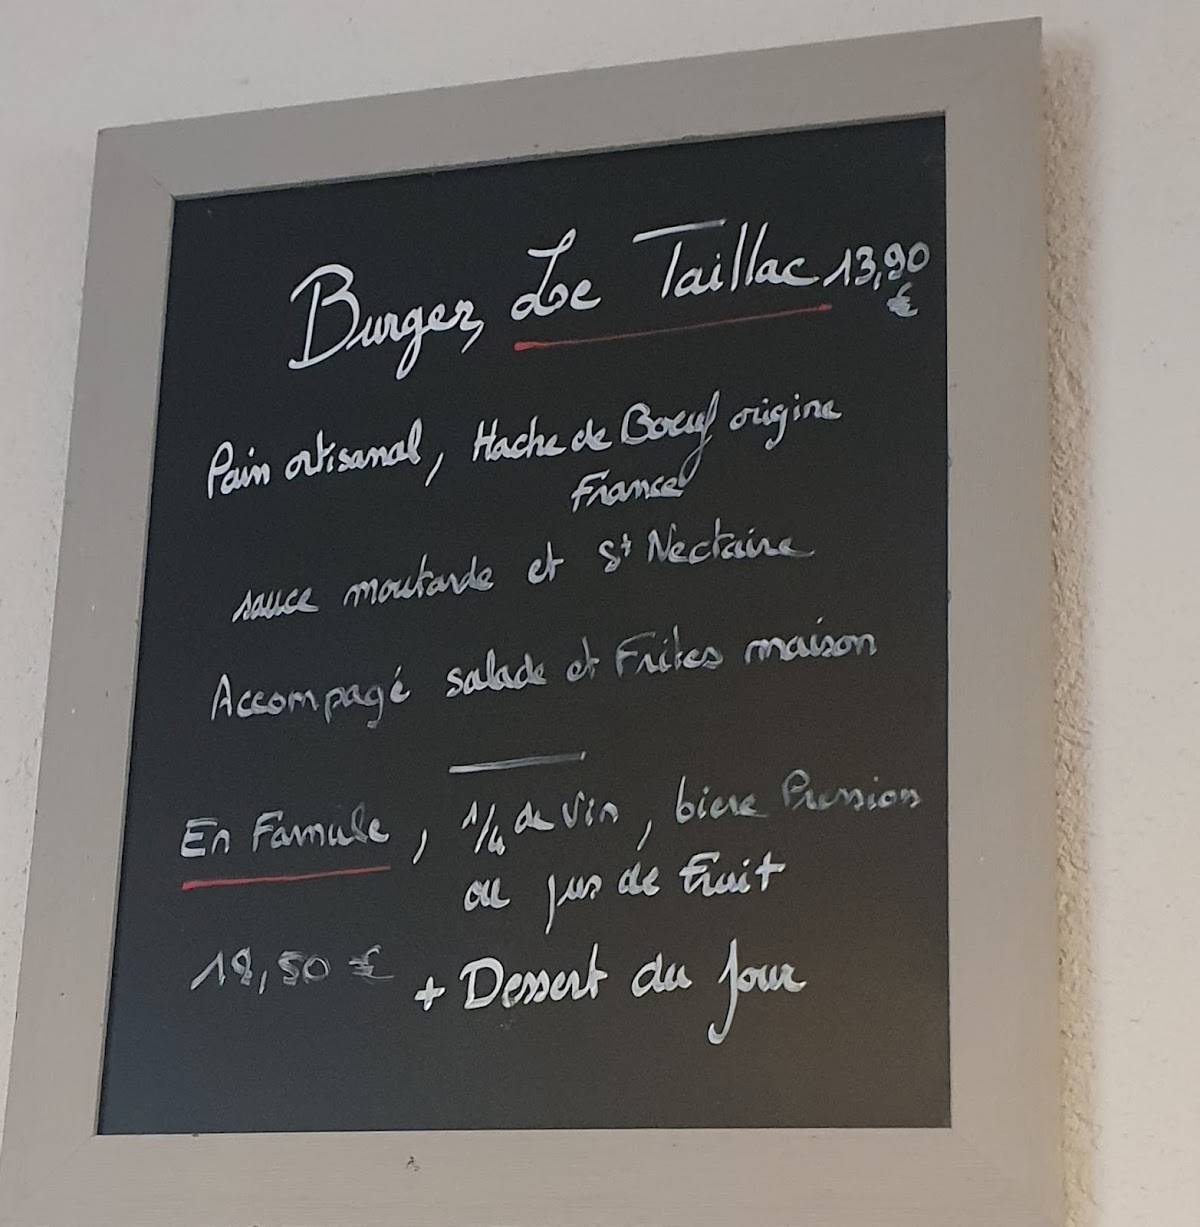 Burger, Le Taillac 13,90
€
Pain artisanal, Haché de Boeuf origine
France
sauce moutarde et St Nectaire
Accompagé salade et Frites maison
En Famule, 1/4 de Vin, bière Pression
ou jus de Fruit
18,50 € + Dessert du Jour